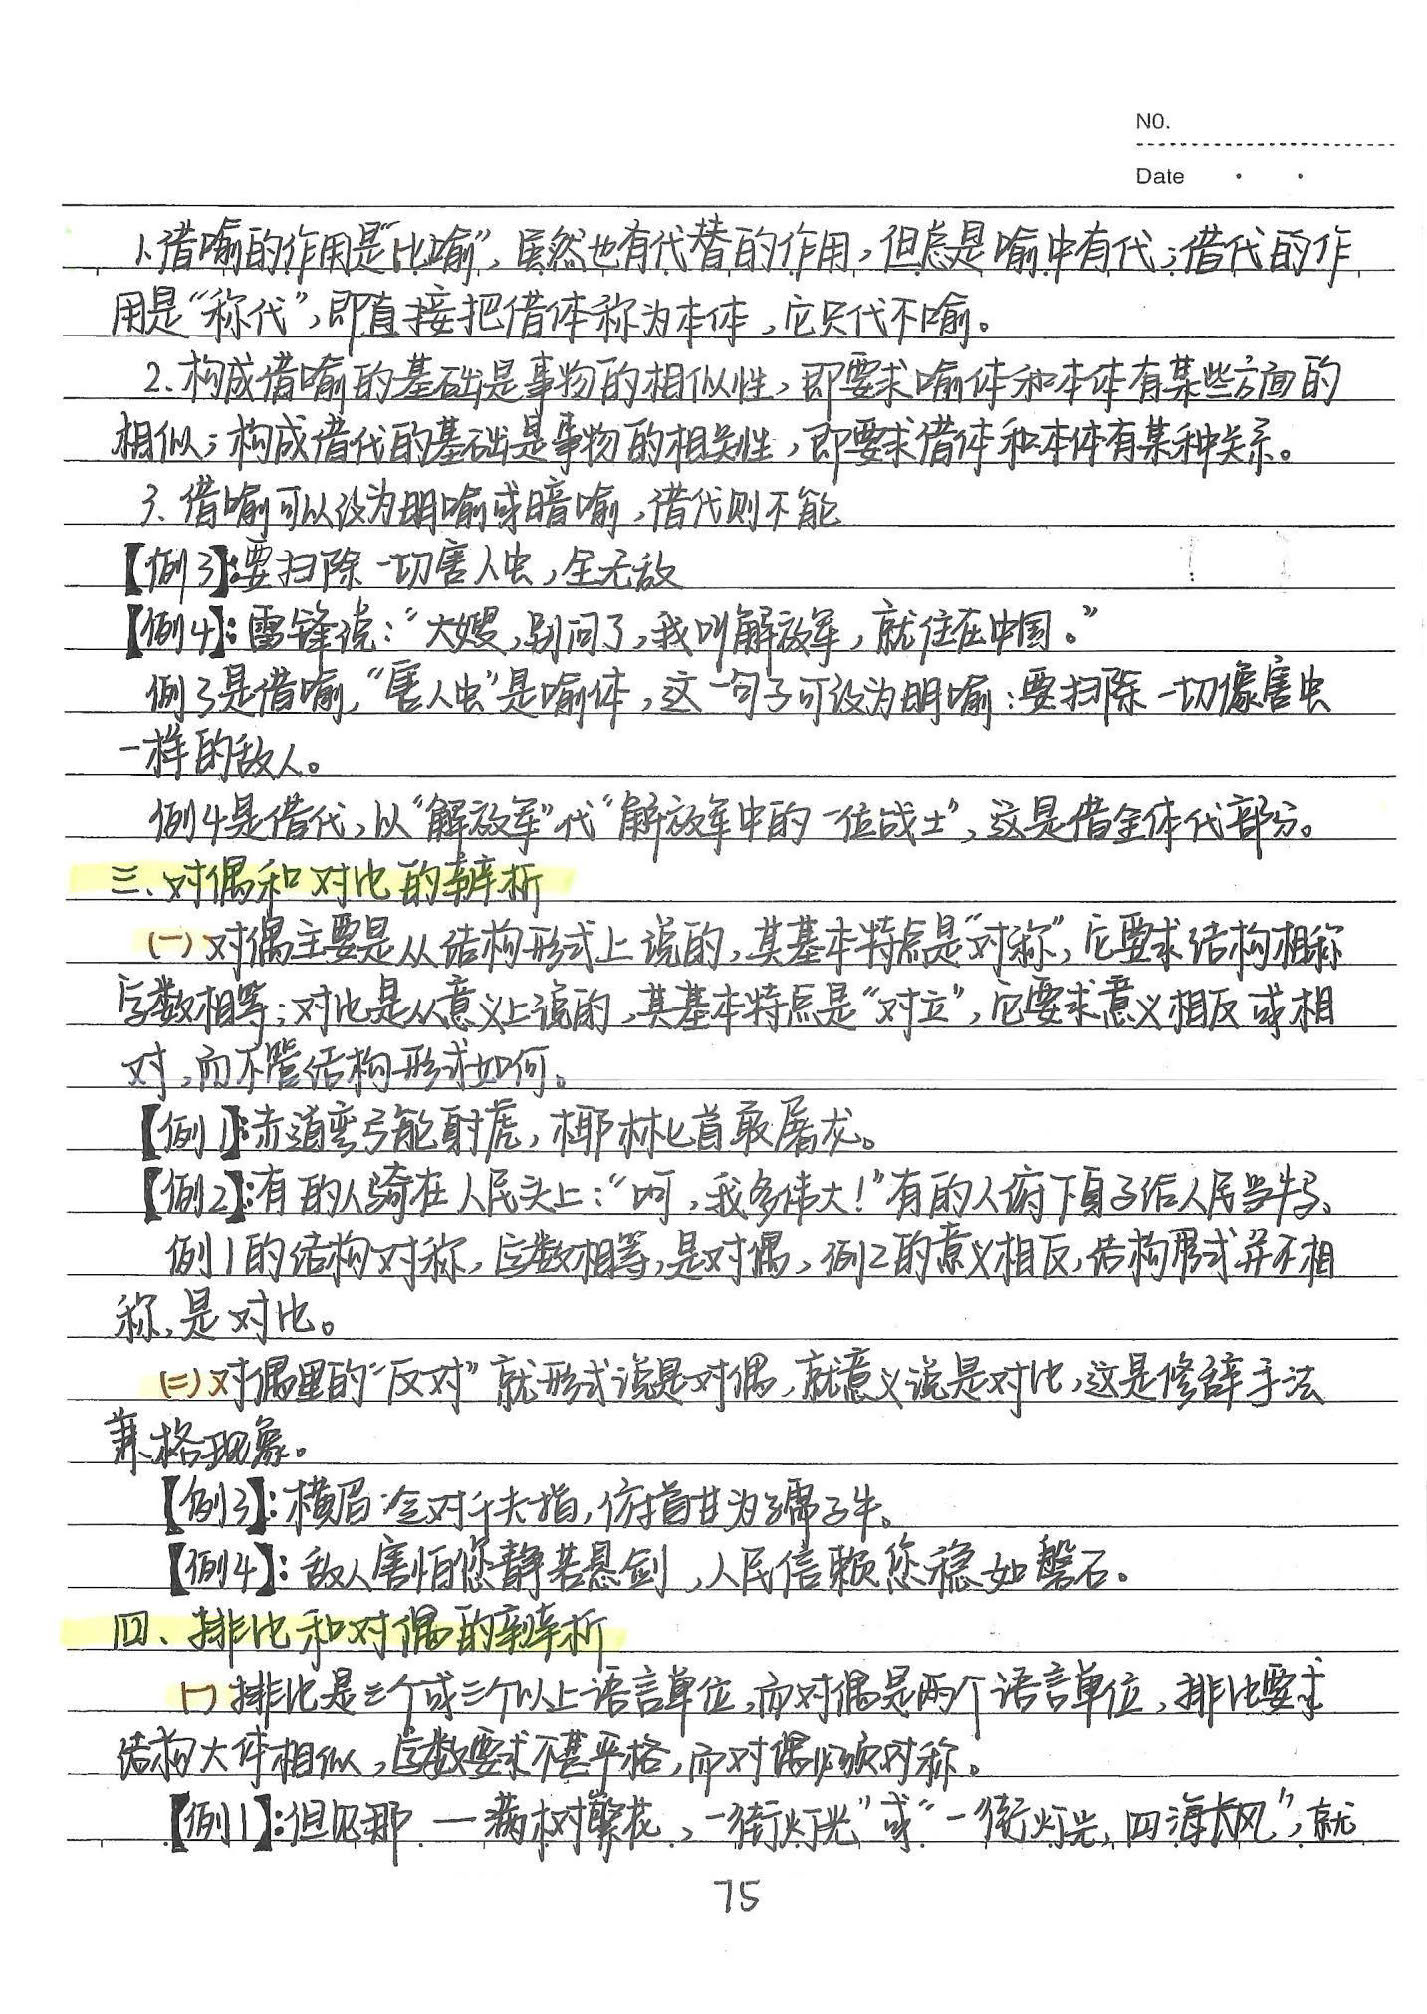 NO.
Date
1.借喻的作用是“比喻”,虽然也有代替的作用,但总是喻中有代;借代的作
用是“称代”,即直接把借体称为本体,它只代不喻。
2.构成借喻的基础是事物的相似性,即要求喻体和本体有某些方面的
相似;构成借代的基础是事物的相关性,即要求借体和本体有某种关系。
3.借喻可以设为明喻或暗喻,借代则不能
【例3】:要扫除一切害人虫,全无敌
【例4】:雷锋说:“大嫂,别问了,我叫解放军,就住在中国。”
例3是借喻,“害人虫”是喻体,这一句子可设为明喻:要扫除一切像害虫
一样的敌人。
例4是借代,以“解放军”代“解放军中的一位战士”,这是借全体代部分。
三、对偶和对比的辨析
(一)对偶主要是从结构形式上说的,其基本特点是“对称”,它要求结构相称
字数相等;对比是从意义上说的,其基本特点是“对立”,它要求意义相反或相
对,而不管结构形式如何。
【例1】:赤道弯弓能射虎,椰林匕首敢屠龙。
【例2】:有的人骑在人民头上:“呵,我多伟大!”有的人俯下身子给人民当牛马、
例1的结构对称,字数相等,是对偶,例2的意义相反,结构形式并不相
称,是对比。
(二)对偶里的“反对”就形式说是对偶,就意义说是对比,这是修辞手法
兼格现象。
【例3】:横眉冷对千夫指,俯首甘为孺子牛。
【例4】:敌人害怕您静若悬剑,人民信赖您稳如磐石。
四、排比和对偶的辨析
(一)排比是三个或三个以上语言单位,而对偶是两个语言单位,排比要求
结构大体相似,字数要求不甚严格,而对偶必须对称。
【例1】:但见那一满树繁花,一街灯光”或“一街灯光,四海长风”,就
75